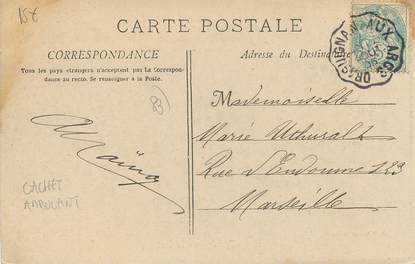 15€
CARTE POSTALE
CORRESPONDANCE
Tous les pays étrangers n'acceptent pas la Correspon-
dance au recto. Se renseigner à la Poste.
Adresse du Destina
DRAGUIGNAN AUX ARCS
83
Mademoiselle
Marie
Rue d'Endoume 123
Marseille
CACHET
AMBULANT